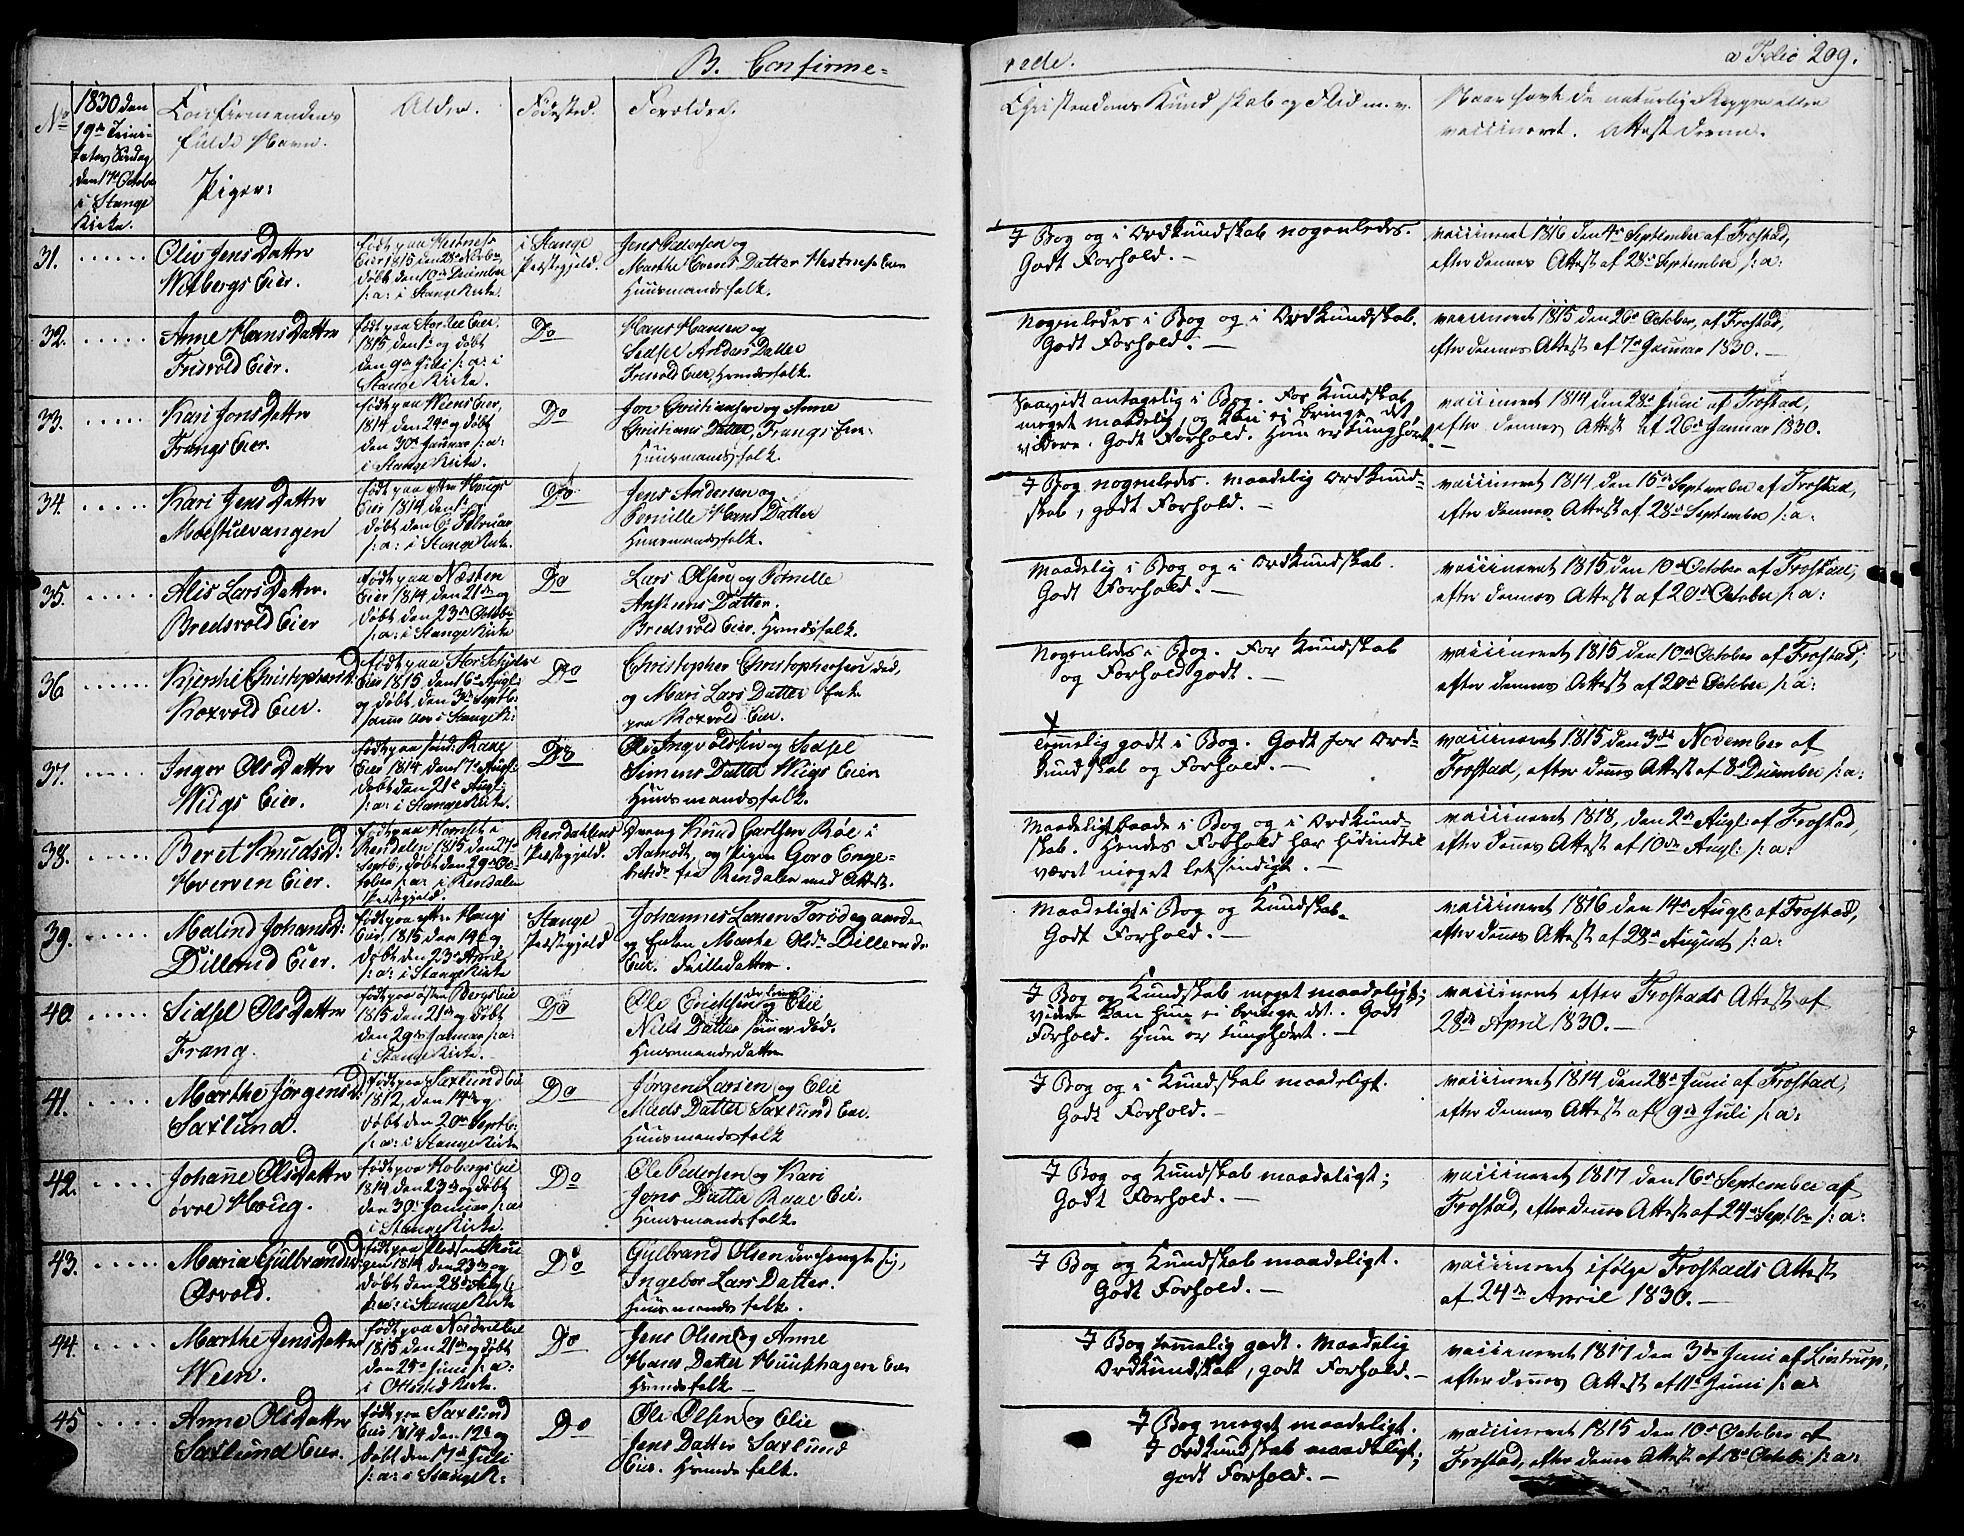 B. Confirme=
rede.
a Folio 209.
No
1830 den
19de Trini=
tatis Søndag
den 17de October
i Stange
Kirke.
Confirmandens
fulde Navn.
Piger:
Alder.
Fødested.
Forældre.
Christendoms Kundskab og Flid m. v.
Naar havt de naturlige Kopper eller
vaccineret. Attest derom.
31.
Olive Jens Datter
Witbergs Eier.
født paa Hestnes
Eier 1815 den 28de Novbr,
døbt den 10de December
s: a: i Stange Kirke.
i Stange
Præstegjeld.
Jens Pedersen og
Marthe Evens Datter Hestnes Eier
Huusmandsfolk.
I Bog og i Ordkundskab nogenledes.
Godt Forhold. —
vaccineret 1816 den 4de September af Frostad,
efter dennes Attest af 28de September s: a:
32.
Anne Hans Datter
Frisvold Eier.
1815, den 1ste og døbt
den 9de Juli s: a: i
Stange Kirke.
Do
Hans Hansen og
Sidsel Anders Datter
Frisvold Eier, Huusmandsfolk.
Nogenledes i Bog og i Ordkundskab.
Godt Forhold. —
vaccineret 1815 den 26de October, af Frostad,
efter dennes Attest af 7de Januar 1830. —
33.
Kari Jons Datter
Frangs Eier.
født paa Wiens Eier,
1814 den 24de og døbt
den 30de Januar s: a:
i Stange Kirke.
Do
Jon Christiansen og Anne
Christians Datter, Frangs Eier
Huusmandsfolk.
Saavidt antagelig i Bog. For Kundskab
meget maadelig, og kan ei bringe det
videre. Godt Forhold. Hun er tunghørt.
vaccineret 1814 den 28de Juni af Frostad,
efter dennes Attest af 26de Januar 1830.
34.
Kari Jens Datter
Moestuevangen
født paa yttre Hougs
Eier 1814, den 1ste
døbt den 6te Februar
s: a: i Stange Kirke.
Do
Jens Andersen og
Pernille Hans Datter
Huusmandsfolk.
I Bog nogenledes. maadelig Ordkund=
skab, godt Forhold. —
vaccineret 1814, den 15de September af Frostad,
efter dennes Attest af 28de September s: a:
35.
Alis Lars Datter.
Bredsvold Eier
født paa Næsten
Eier 1814, den 21de og
døbt den 23de October
s: a: i Stange Kirke
Do
Lars Olsen og Pernille
Datter.
Bredsvold Eier. Huusmandsfolk.
Maadelig i Bog og i Ordkundskab.
Godt Forhold. —
vaccineret 1815 den 10de October af Frostad,
efter dennes Attest af 20de October s: a:
36
Kjersti Christophersd:
Roxvold Eier.
Eier 1815 den 16de Augl:
og døbt den 3de Septbr:
samme Aar i Stange K:
Do
Christopher Christophersen død,
og Mari Lars Datter Enke
paa Roxvold Eier.
Nogenledes i Bog. For Kundskab
og Forhold godt. —
vaccineret 1815, den 10de October af Frostad,
efter dennes Attest af 20de October s: a:
37.
Inger Ols Datter
Wiigs Eier.
Eier 1814 den 17de Augl:
døbt den 21de Augl:
s: a: i Stange Kirke.
Do
Ole Ingvoldsen og Sidsel
Simens Datter Wiigs Eier
Huusmandsfolk.
Temmelig godt i Bog. Godt for Ord=
kundskab og Forhold. —
vaccineret 1815 den 3die November af
Frostad, efter dennes Attest af 8de December s: a:
38.
Beret Knudsd:
Hverven Eier.
Rendalen 1815 den 27de
Septbr:, døbt den 29de Oc=
tober s: a: i Rendalen
Præstegjeld.
Rendahlens
Præstegjeld.
Dreng Knud Carlsen Røe i
Aamodt, og Pigen Goro Enge=
bretsdr fra Rendalen med Attest.
Maadeligt baade i Bog og i Ordkund=
skab. Hendes Forhold har hidindtil
været meget letsindigt. —
vaccineret 1818, den 2de Augl: af Frostad,
efter dennes Attest af 10de Augl: s: a:
39.
Malind Johansd:
Dillerud Eier.
født paa yttre Hougs
Eier 1815 den 14de og
døbt den 23de April
s: a: i Stange Kirke
Stange
Præstegjeld
Johannes Larsen Torødegaarden
og Enken Marthe Olsdr. Dillerud
Eier. Frilledatter.
Maadeligt i Bog og Kundskab.
Godt Forhold. —
vaccineret 1816 den 14de Augl: af Frostad,
efter dennes Attest af 28de August s: a:
40.
Sidsel Ols Datter
Frang.
født paa østen Bergs Eier
1815 den 21de og døbt
den 29de Januar s: a:
i Stange Kirke.
Do
Ole Ericksen og Elie
Niels Datter som er død.
Huusmandsdatter
I Bog og Kundskab meget maadeligt;
videre kan hun ei bringe det. Godt
Forhold. Hun er tunghørt. —
vaccineret efter Frostads Attest af
28de April 1830. —
41.
Marthe Jørgensd:
Saxlund.
født paa Saxlund Eier
1812, den 14de og
døbt den 20de Septbr:
s: a: i Stange Kirke
Do
Jørgen Larsen og Elie
Mads Datter Saxlund Eier.
Huusmandsfolk
I Bog og i Kundskab maadeligt.
Godt Forhold. —
vaccineret 1814, den 28de Juni af Frostad,
efter dennes Attest af 9de Juli s: a:
42.
Johanne Ols Datter
øvre Houg.
født paa Hobergs Eier
1814 den 23de og døbt
den 30te Januar s: a:
i Stange Kirke.
Do
Ole Pedersen og Kari
Jens Datter Raae Eier.
Huusmandsfolk
I Bog og Kundskab maadeligt;
Godt Forhold. —
vaccineret 1817 den 16de September af
Frostad, efter dennes Attest af 24de Septbr: s: a:
43.
Maria Gulbrandsd:
Osvold.
gen 1814 den 23de og
døbt den 28de Augl:
s: a: i Stange Kirke
Do
Gulbrand Olsen der hengte sig,
Ingebor Lars Datter.
Huusmandsfolk.
I Bog og Kundskab maadeligt.
Godt Forhold. —
vaccineret ifølge Frostads Attest
af 24de April 1830. —
44.
Marthe Jens Datter
Ween.
født paa Nordvie Eier
1815 den 21de og døbt
den 25de Juni s: a:
i Ottestad Kirke.
Do
Jens Olsen og Anne
Hans Datter Huushagen Eier
Huusmandsfolk —
I Bog temmelig godt. Maadelig
Ordkundskab, godt Forhold. —
vaccineret 1817 den 3die Juni af Lintrup,
efter dennes Attest af 11te Juni s: a:
45
Anne Ols Datter
Saxlund Eier.
født paa Saxlund
Eier 1814, den 12te og
døbt den 17de Juli
s: a: i Stange K:
Do
Ole Olsen og Elie
Jens Datter Saxlund
Eier. Huusmandsfolk.
I Bog meget maadeligt.
I Ordkundskab maadeligt;
godt Forhold. —
vaccineret 1815 den 10de October af
Frostad, efter dennes Attest af 18de October s: a: